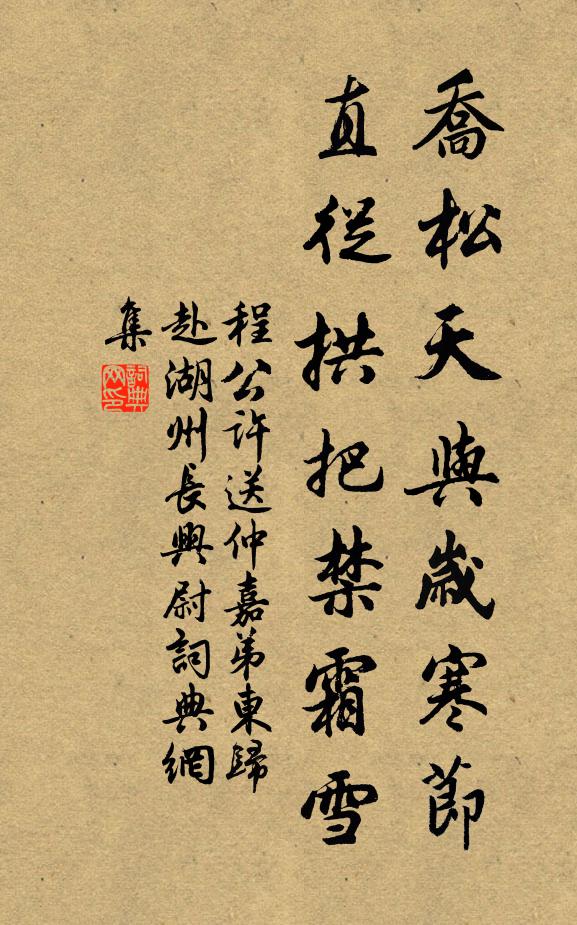 喬松天與歲寒節
直從拱把禁霜雪
程公許送仲嘉弟東歸
赴湖州長興尉詞典網
集
詞典網印